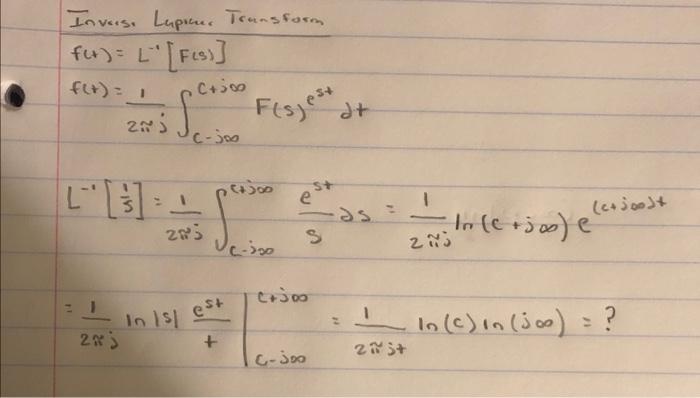 Inverse Laplace Transform
f(t) = L⁻¹[F(s)]
f(t) = 1/(2πj) ∫_{c-j∞}^{c+j∞} F(s)^{e^{st}} dt
L⁻¹[1/s] = 1/(2πj) ∫_{c-j∞}^{c+j∞} e^{st}/s ds = 1/(2πj) ln(c+j∞) e^{(c+j∞)t}
= 1/(2πj) ln|s| e^{st}/t |_{c-j∞}^{c+j∞} = 1/(2πjt) ln(c) ln(j∞) = ?